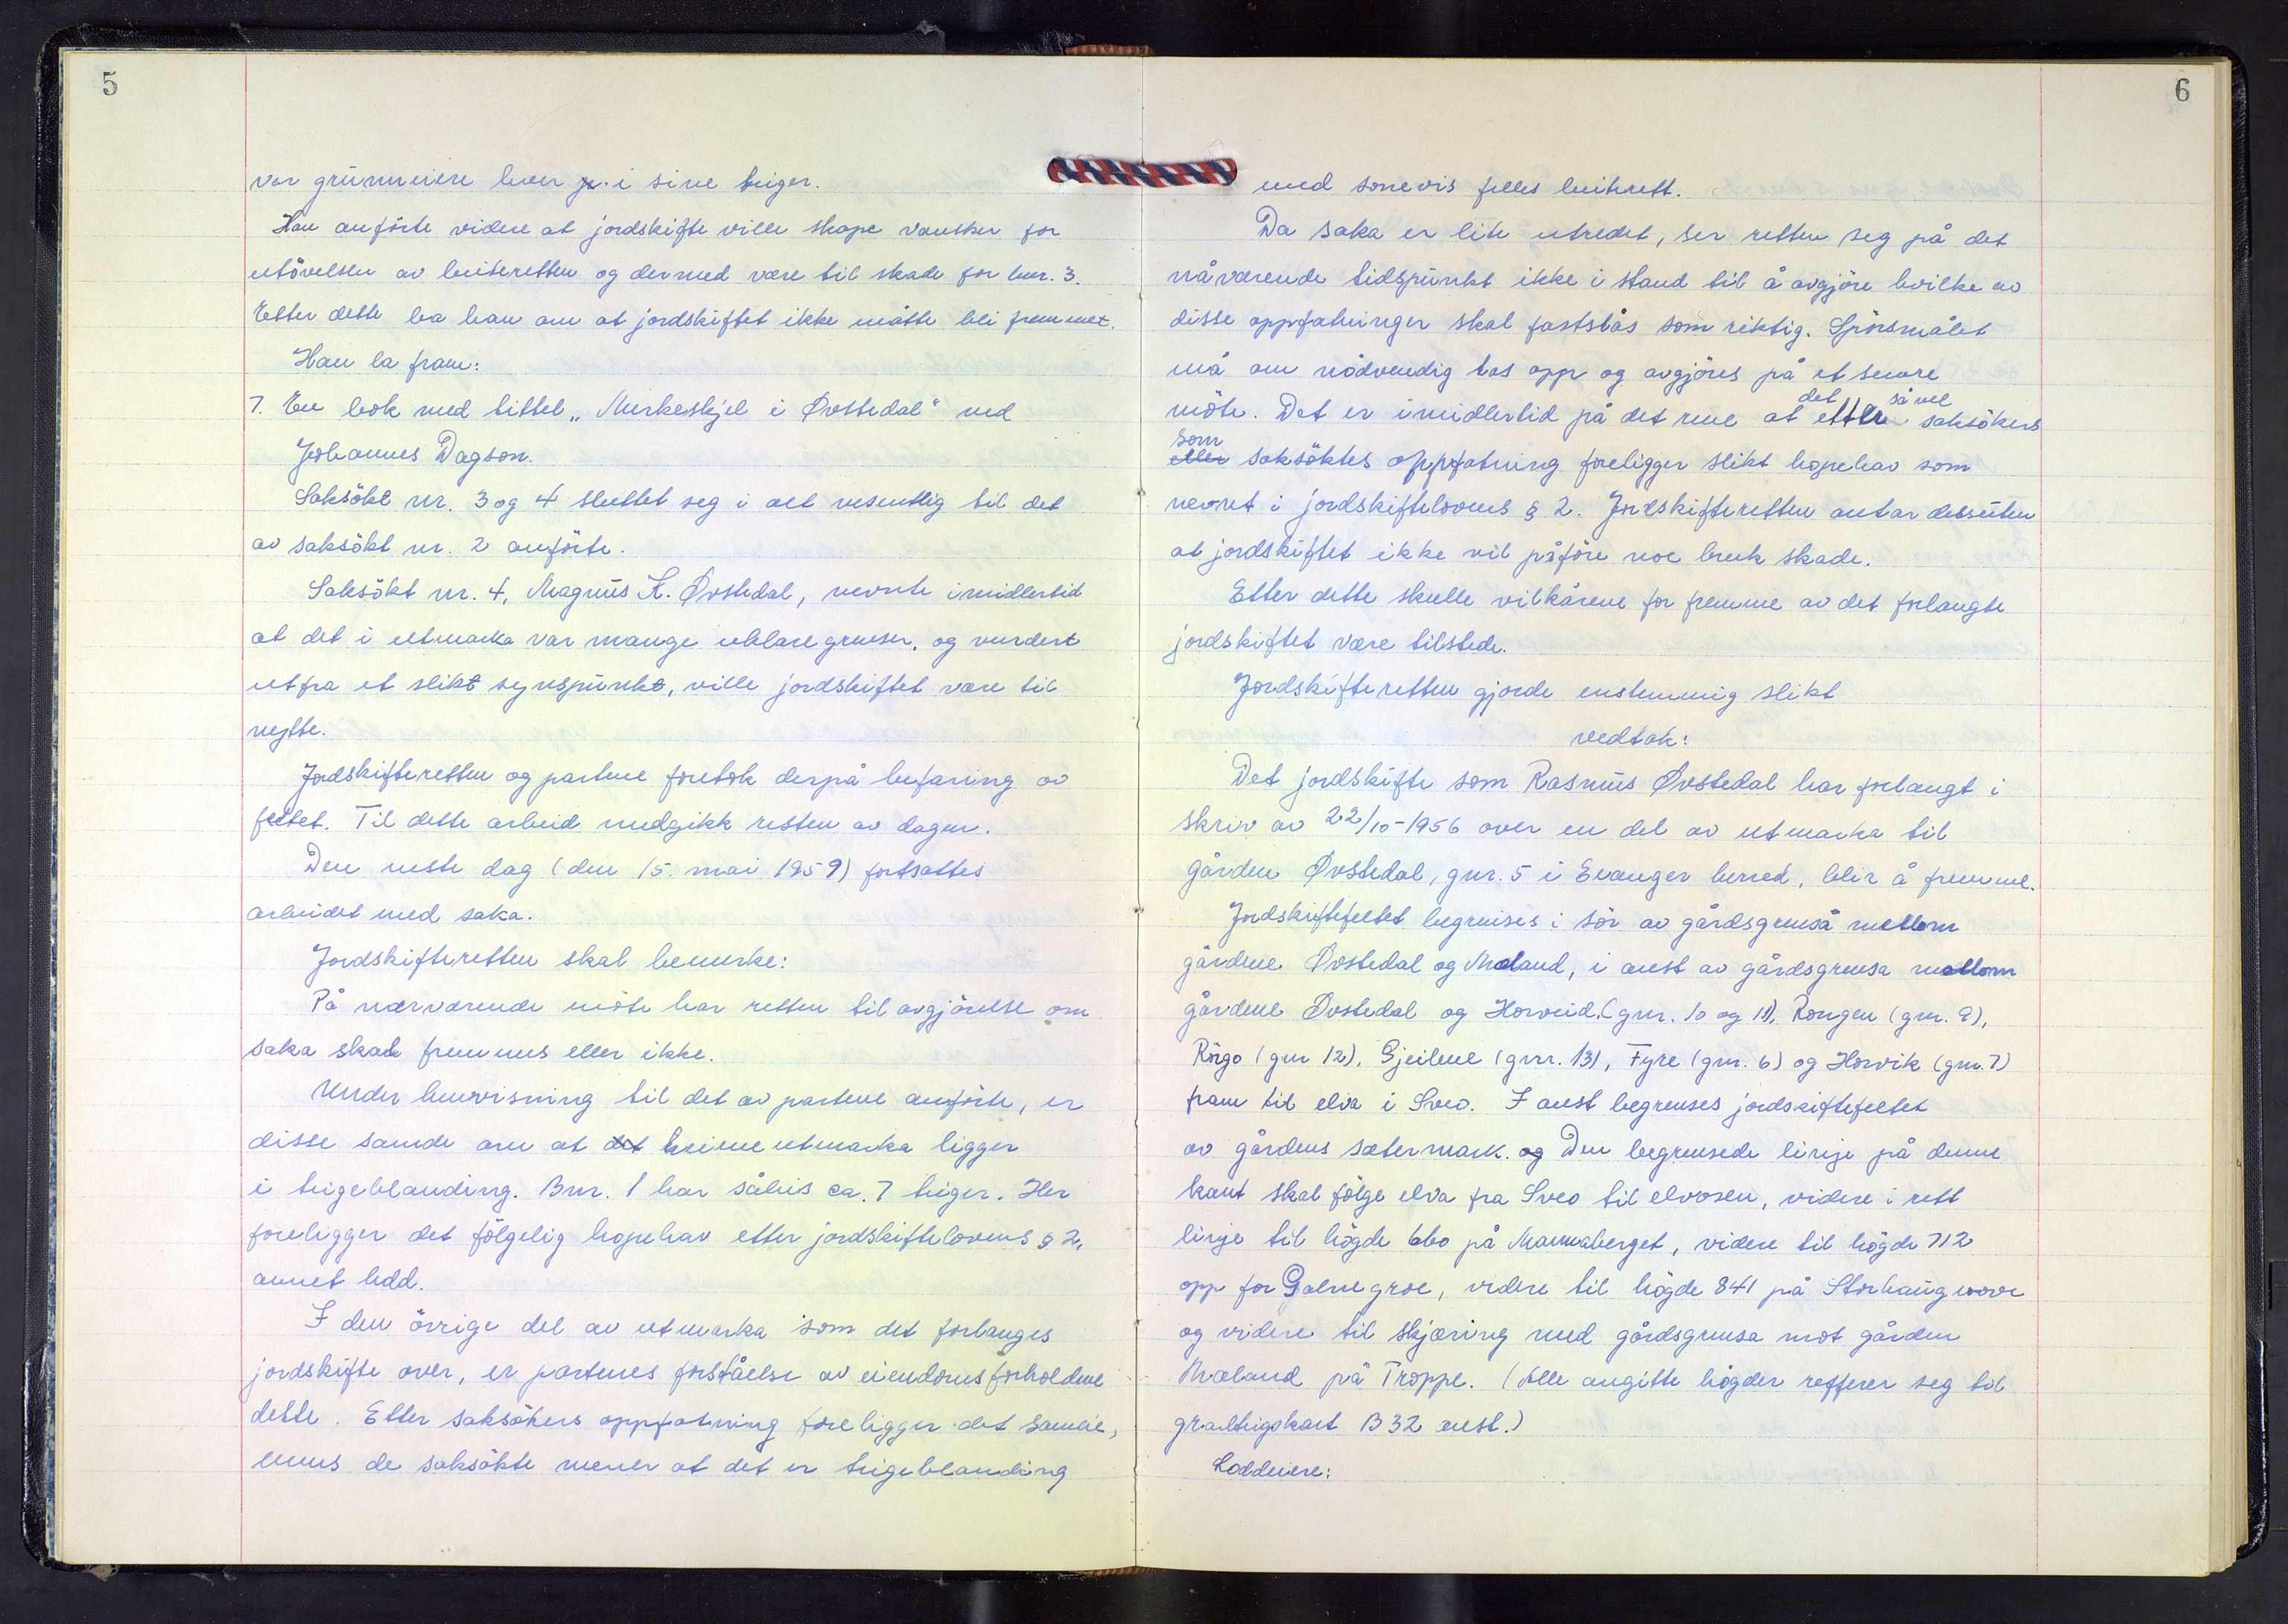 5
var grunneiere hver i sine teiger.
Han anförte videre at jordskifte ville skape vansker for
utövelsen av beiteretten og dermed være til skade for bnr. 3.
Etter dette ba han om at jordskiftet ikke måtte bli fremmet.
Han la fram:
7. En bok med tittel „Merkeskjel i Övstedal" ved
Johannes Dagson.
Saksökt nr. 3 og 4 sluttet seg i alt vesentlig til det
av saksökt nr. 2 anförte.
Saksökt nr. 4, Magnus K. Øvstedal, nevnte imidlertid
at det i utmarka var mange uklare grenser, og vurdert
ut fra et slikt synspunkt, ville jordskiftet være til
nytte.
Jordskifteretten og partene foretok derpå befaring av
feltet. Til dette arbeid medgikk resten av dagen.
Den neste dag (den 15. mai 1959) fortsattes
arbeidet med saka.
Jordskifteretten skal bemerke:
På nærværende möte har retten til avgjörelse om
saka skal fremmes eller ikke.
Under henvisning til det av partene anförte, er
disse samde om at det heime utmarka ligger
i teigeblanding. Bnr. 1 har således ca. 7 teiger. Her
foreligger det fölgelig hopehav etter jordskiftelovens § 2,
annet ledd.
I den övrige del av utmarka som det forlanges
jordskifte over, er partenes forståelse av eiendomsforholdene
delte. Etter saksökers oppfatning foreligger det sameie,
mens de saksökte mener at det er teigeblanding
6
med sonevis felles beiterett.
Da saka er lite utredet, ser retten seg på det
nåværende tidspunkt ikke i stand til å avgjöre hvilke av
disse oppfatninger skal fastslås som riktig. Spörsmålet
må om nödvendig tas opp og avgjöres på et senere
det så vel
möte. Det er imidlertid på det rene at etter saksökers
som
eller saksöktes oppfatning foreligger slikt hopehav som
nevnt i jordskiftelovens § 2. Jordskifteretten antar dessuten
at jordskiftet ikke vil påföre noe bruk skade.
Etter dette skulle vilkårene for fremme av det forlangte
jordskiftet være tilstede.
Jordskifteretten gjorde enstemmig slikt
vedtak:
Det jordskifte som Rasmus Øvstedal har forlangt i
skriv av 22/10-1956 over en del av utmarka til
gården Øvstedal, gnr. 5 i Evanger herred, blir å fremme.
Jordskiftefeltet begrenses i sör av gårdsgrensa mellom
gårdene Øvstedal og Mæland, i aust av gårdsgrensa mellom
gårdene Øvstedal og Horveid (gnr. 10 og 11), Rongen (gnr. 9),
Rögo (gnr 12), Gjeilene (gnr. 13), Fyre (gnr. 6) og Horvik (gnr. 7)
fram til elva i Sveo. I aust begrenses jordskiftefeltet
av gårdens sætermark. og Den begrensede linje på denne
kant skal fölge elva fra Sveo til elvosen, videre i rett
linje til högde 660 på Mannaberget, videre til högde 712
opp for Galnegroe, videre til högde 841 på Storhaugnove
og videre til skjæring med gårdsgrensa mot gården
Mæland på Troppe. (Alle angitte högder refferer seg til
gradteigskart B 32 aust.)
Loddeiere: